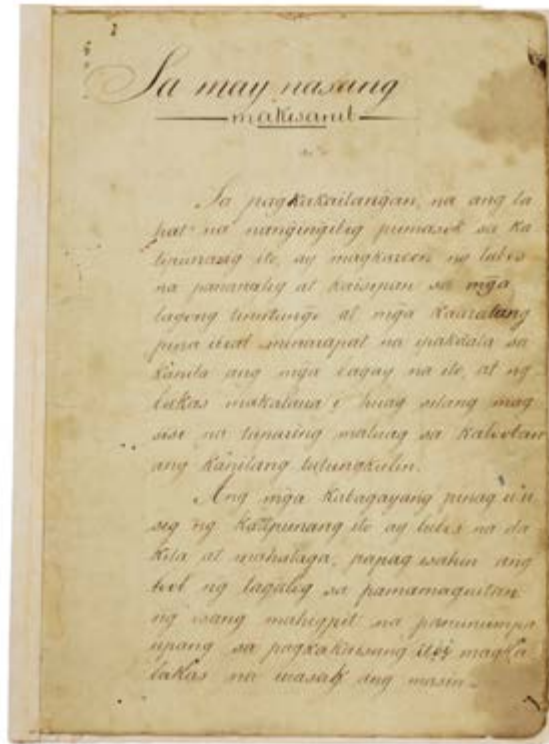 Sa may nasang
makisanib
Sa pagkakailangan, na ang la
hat na nangingibig pumasok sa ka
tipunang ito, ay magkaroon ng lubos
na pananalig at kaisipan sa mga
layong tinutungo at mga kaaralang
pina iiral, minarapat na ipakilala sa
kanila ang mga bagay na ito, at ng
bukas makalawa i huag silang mag
sisi na tuparing maluag sa kalooban
ang kanilang tutungkulin.
Ang mga kabagayang pinag
ng katipunang ito ay lubos na da
kila at mahalaga; papag isahin ang
loob ng tagalog sa pamamaguitan
ng isang mahigpit na panunumpa
upang sa pagkakaisang ito'y magka
lakas na iwasak ang masin-